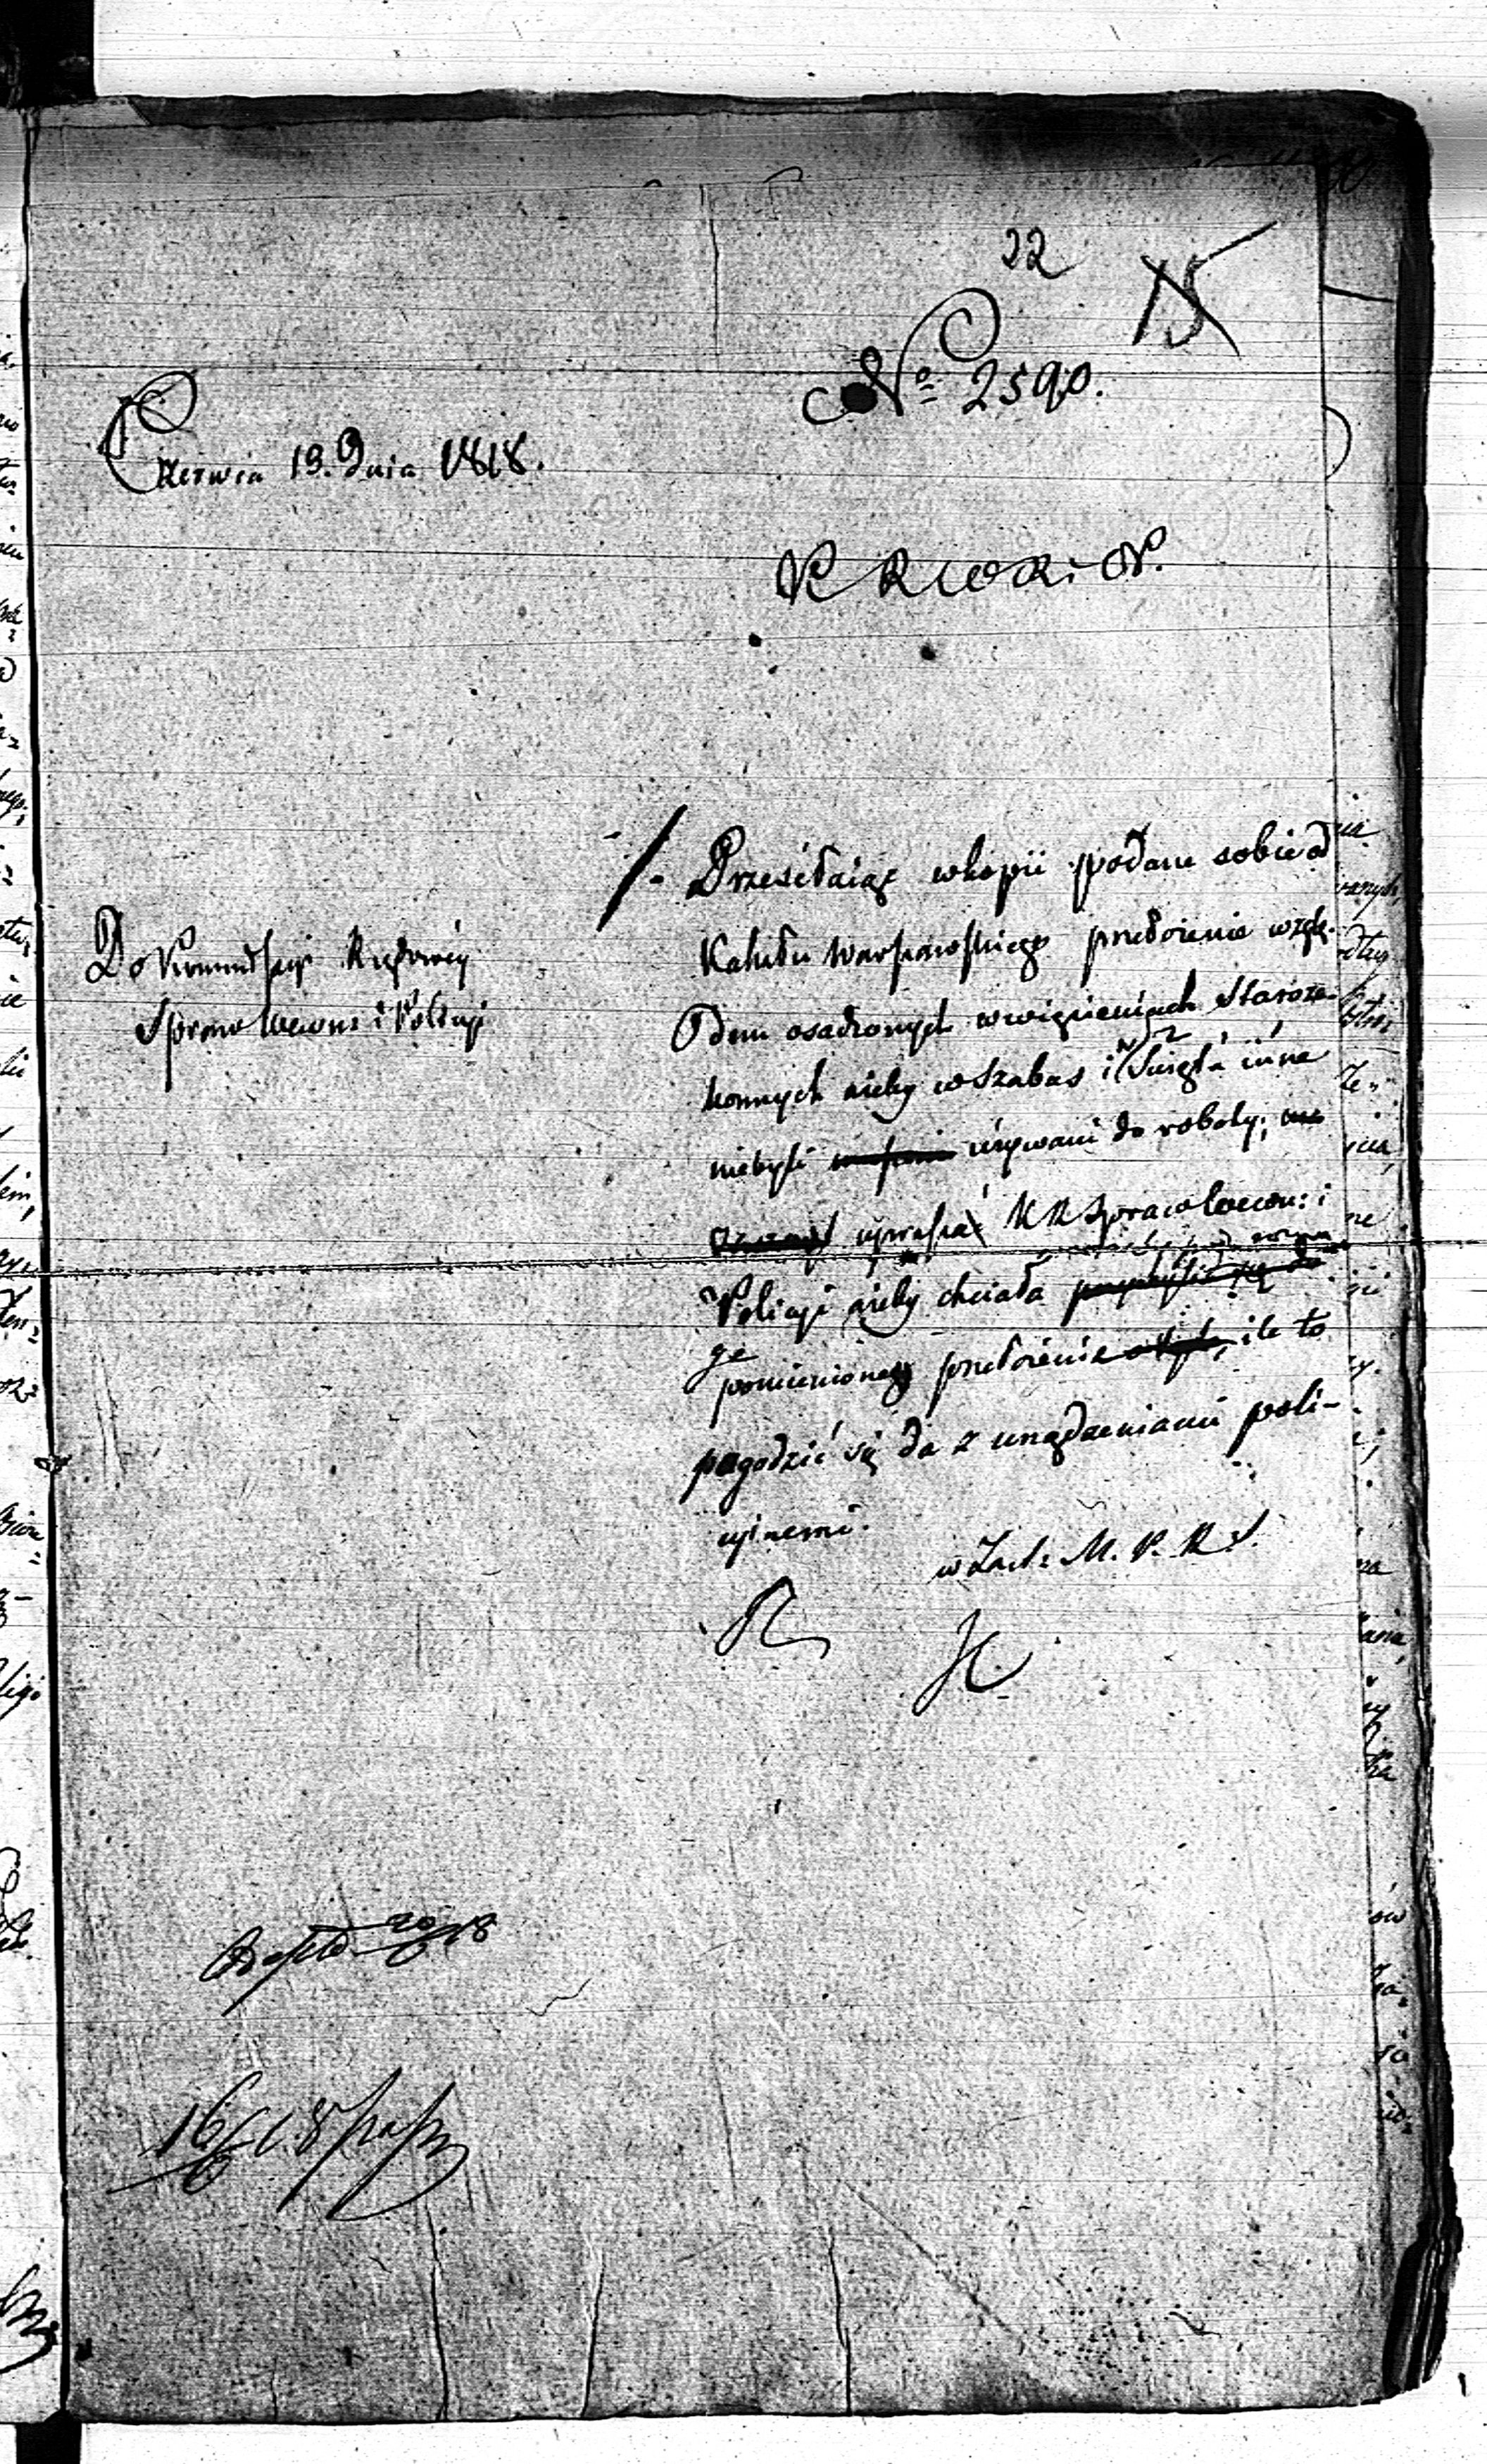 22
15
No 2590.
Czerwca 19. Dnia 1818.
K R W R i O P.
Do Kommissyi Rządowéy
Spraw Wewn: i Policyi
/. Przesyłaiąc w kopii podane sobie od
Kahału Warszawskiego przełożenie wzglę-
dem osadzonych w więzieniach Staroza-
konnych ażeby w Szabas i Święta inne
niebyli używani do roboty;
uprasza K R Spraw Wewn: i
Policyi ażeby chciała
pomienione przełożenie ile to
pogodzić się da z urządzeniami poli-
cyinemi.
w Zast: M. P. K S.